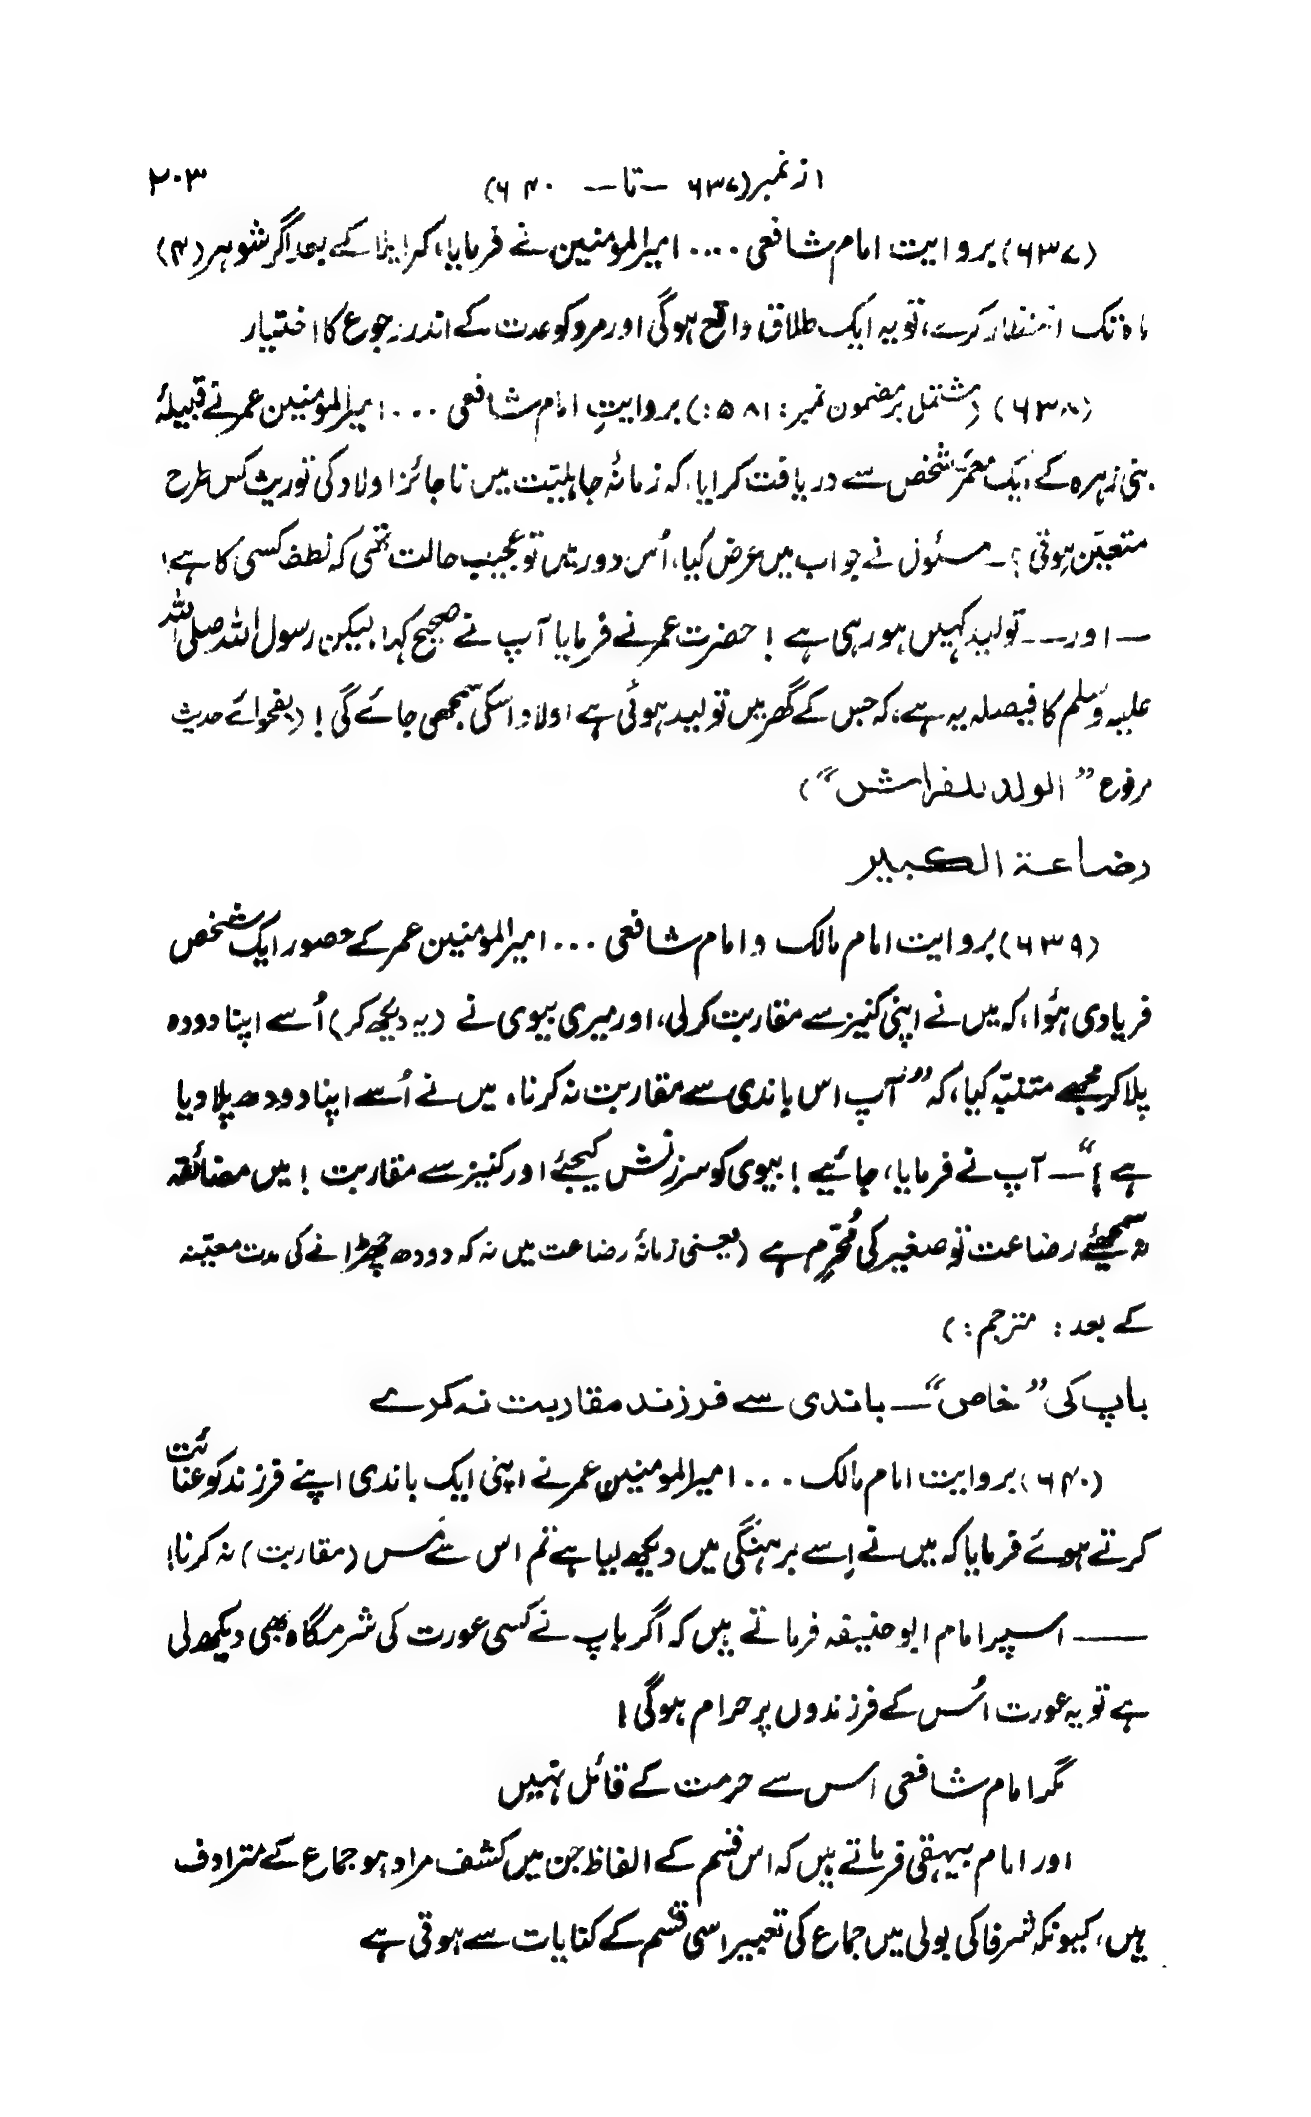 از نمبر (۶۳۷ — تا — ۶۴۰) ۲۰۳
(۶۳۷) بروایت امام شافعی .... امیرالمؤمنین نے فرمایا، کہ ایلا کے بعد اگر شوہر (۴)
ماہ تک انتظار کرے، تو یہ ایک طلاق واقع ہوگی اور مرد کو عدت کے اندر رجوع کا اختیار
(۶۳۸) (مشتمل بر مضمون نمبر: ۵۸۱:) بروایتِ امام شافعی ... امیرالمؤمنین عمر نے قبیلۂ
بنی زہرہ کے ایک معمّر شخص سے دریافت کرایا، کہ زمانۂ جاہلیّت میں ناجائز اولاد کی توریث کس طرح
متعیّن ہوتی؟ ـ مسئول نے جواب میں عرض کیا، اُس دور میں تو عجیب حالت تھی کہ نطفہ کسی کا ہے!
— اور — تولید کہیں ہو رہی ہے! حضرت عمر نے فرمایا آپ نے صحیح کہا، لیکن رسول اللہ صلی اللہ
علیہ وسلم کا فیصلہ یہ ہے، کہ جس کے گھر میں تولید ہوئی ہے اولاد اسکی سمجھی جائے گی! (بفحوائے حدیث
مرفوع ”الولد للفراش“)
رضاعة الكبير
(۶۳۹) بروایت امام مالک و امام شافعی ... امیرالمؤمنین عمر کے حضور ایک شخص
فریادی ہُوا، کہ میں نے اپنی کنیز سے مقاربت کر لی، اور میری بیوی نے (یہ دیکھ کر) اُسے اپنا دودھ
پلا کر مجھے متنبّہ کیا، کہ ”آپ اس باندی سے مقاربت نہ کرنا، میں نے اُسے اپنا دودھ پلا دیا
ہے!“ — آپ نے فرمایا، جائیے! بیوی کو سرزنش کیجئے اور کنیز سے مقاربت! میں مضائقہ
نہ سمجھئے رضاعت تو صغیر کی مُحرِّم ہے (یعنی زمانۂ رضاعت میں نہ کہ دودھ چھڑانے کی مدت معیّنہ
کے بعد: مترجم:)
باپ کی ”خاص“ — باندی سے فرزند مقاربت نہ کرے
(۶۴۰) بروایت امام مالک ... امیرالمومنین عمر نے اپنی ایک باندی اپنے فرزند کو عنائت
کرتے ہوئے فرمایا کہ میں نے اِسے برہنگی میں دیکھ لیا ہے تم اس سے مس (مقاربت) نہ کرنا!
— اسپر امام ابو حنیفہ فرماتے ہیں کہ اگر باپ نے کسی عورت کی شرمگاہ بھی دیکھ لی
ہے تو یہ عورت اُس کے فرزندوں پر حرام ہوگی!
مگر امام شافعی اس سے حرمت کے قائل نہیں
اور امام بیہقی فرماتے ہیں کہ اس قسم کے الفاظ جن میں کشف مراد ہو جماع کے مترادف
ہیں، کیونکہ شرفا کی بولی میں جماع کی تعبیر اسی قسم کے کنایات سے ہوتی ہے